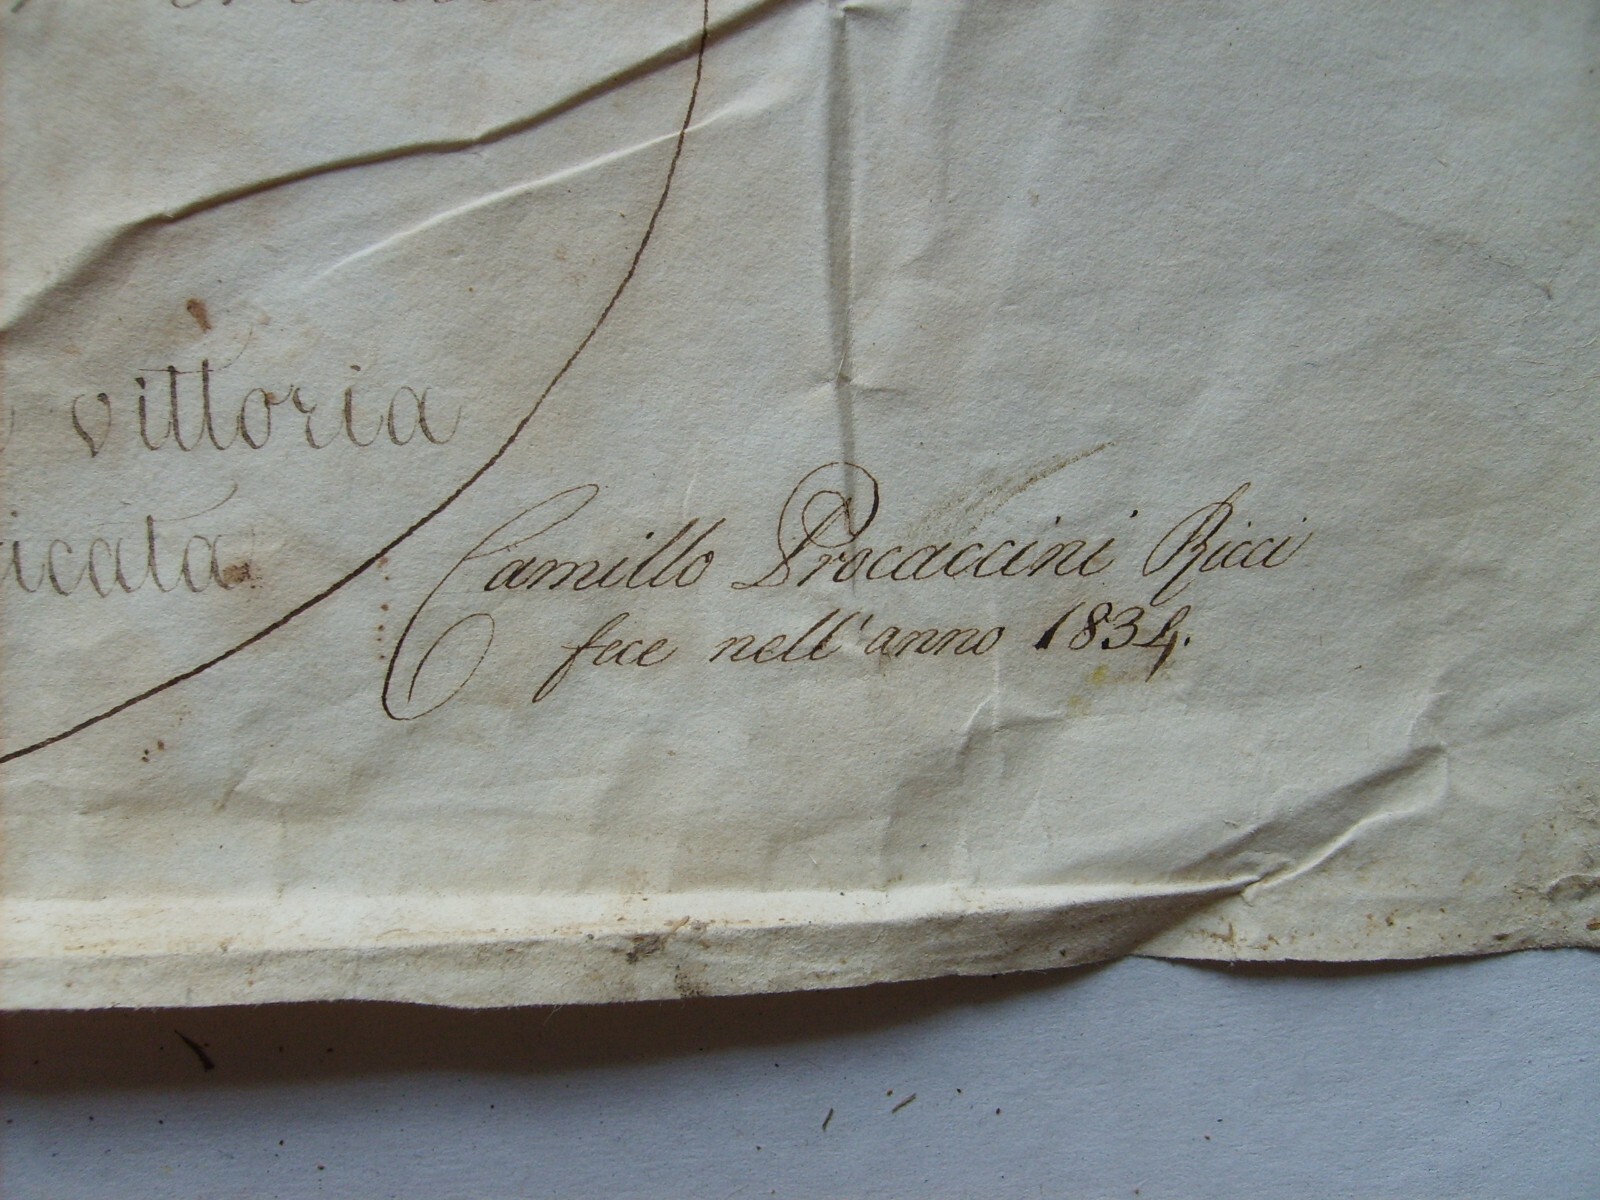 vittoria
icata
Camillo Procaccini Ricci
fece nell'anno 1834.